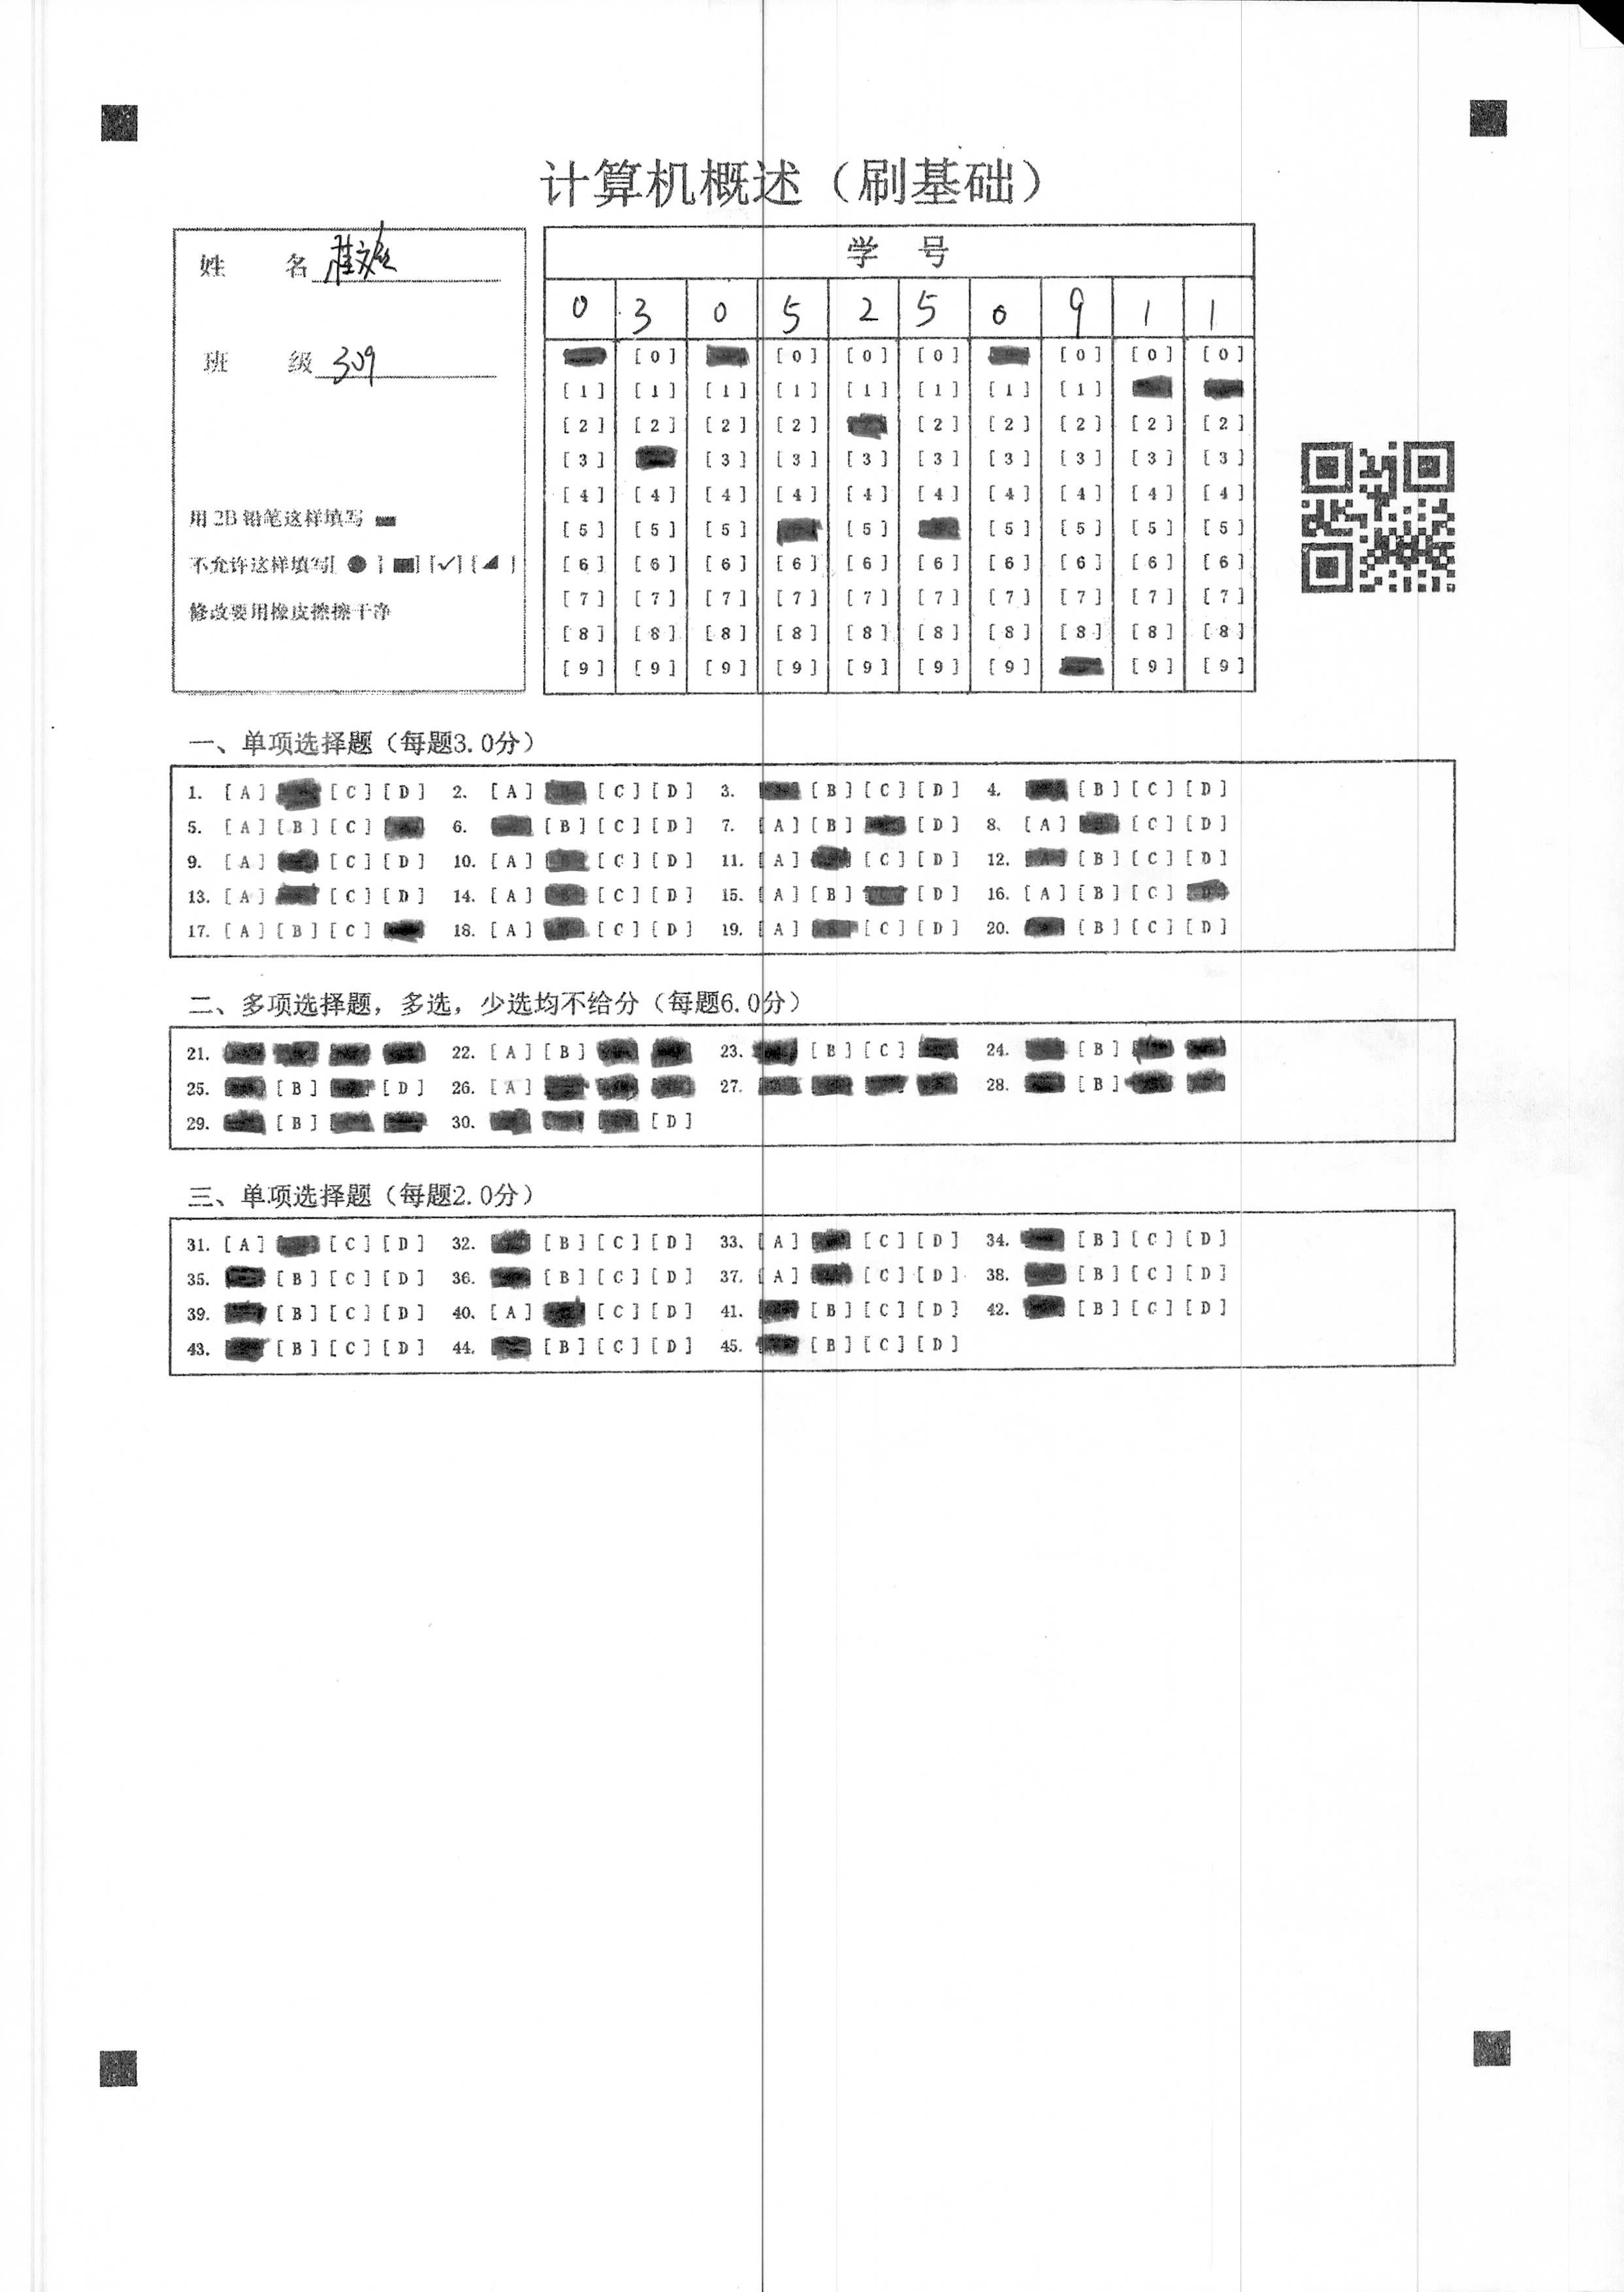 计算机概述（刷基础）
姓 名
班 级 309
用 2B 铅笔这样填写
不允许这样填写[ ● ] [■] [✓] [◢ ]
修改要用橡皮擦擦干净
学 号
0 3 0 5 2 5 0 9 1 1
[0] [0] [0] [0] [0] [0] [0]
[1] [1] [1] [1] [1] [1] [1] [1]
[2] [2] [2] [2] [2] [2] [2] [2] [2]
[3] [3] [3] [3] [3] [3] [3] [3] [3]
[4] [4] [4] [4] [4] [4] [4] [4] [4] [4]
[5] [5] [5] [5] [5] [5] [5] [5]
[6] [6] [6] [6] [6] [6] [6] [6] [6] [6]
[7] [7] [7] [7] [7] [7] [7] [7] [7] [7]
[8] [8] [8] [8] [8] [8] [8] [8] [8] [8]
[9] [9] [9] [9] [9] [9] [9] [9] [9]
一、单项选择题（每题3.0分）
1. [A] [C] [D] 2. [A] [C] [D] 3. [B] [C] [D] 4. [B] [C] [D]
5. [A] [B] [C] 6. [B] [C] [D] 7. [A] [B] [D] 8. [A] [C] [D]
9. [A] [C] [D] 10. [A] [C] [D] 11. [A] [C] [D] 12. [B] [C] [D]
13. [A] [C] [D] 14. [A] [C] [D] 15. [A] [B] [D] 16. [A] [B] [C]
17. [A] [B] [C] 18. [A] [C] [D] 19. [A] [C] [D] 20. [B] [C] [D]
二、多项选择题，多选，少选均不给分（每题6.0分）
21. 22. [A] [B] 23. [B] [C] 24. [B]
25. [B] [D] 26. [A] 27. 28. [B]
29. [B] 30. [D]
三、单项选择题（每题2.0分）
31. [A] [C] [D] 32. [B] [C] [D] 33. [A] [C] [D] 34. [B] [C] [D]
35. [B] [C] [D] 36. [B] [C] [D] 37. [A] [C] [D] 38. [B] [C] [D]
39. [B] [C] [D] 40. [A] [C] [D] 41. [B] [C] [D] 42. [B] [C] [D]
43. [B] [C] [D] 44. [B] [C] [D] 45. [B] [C] [D]